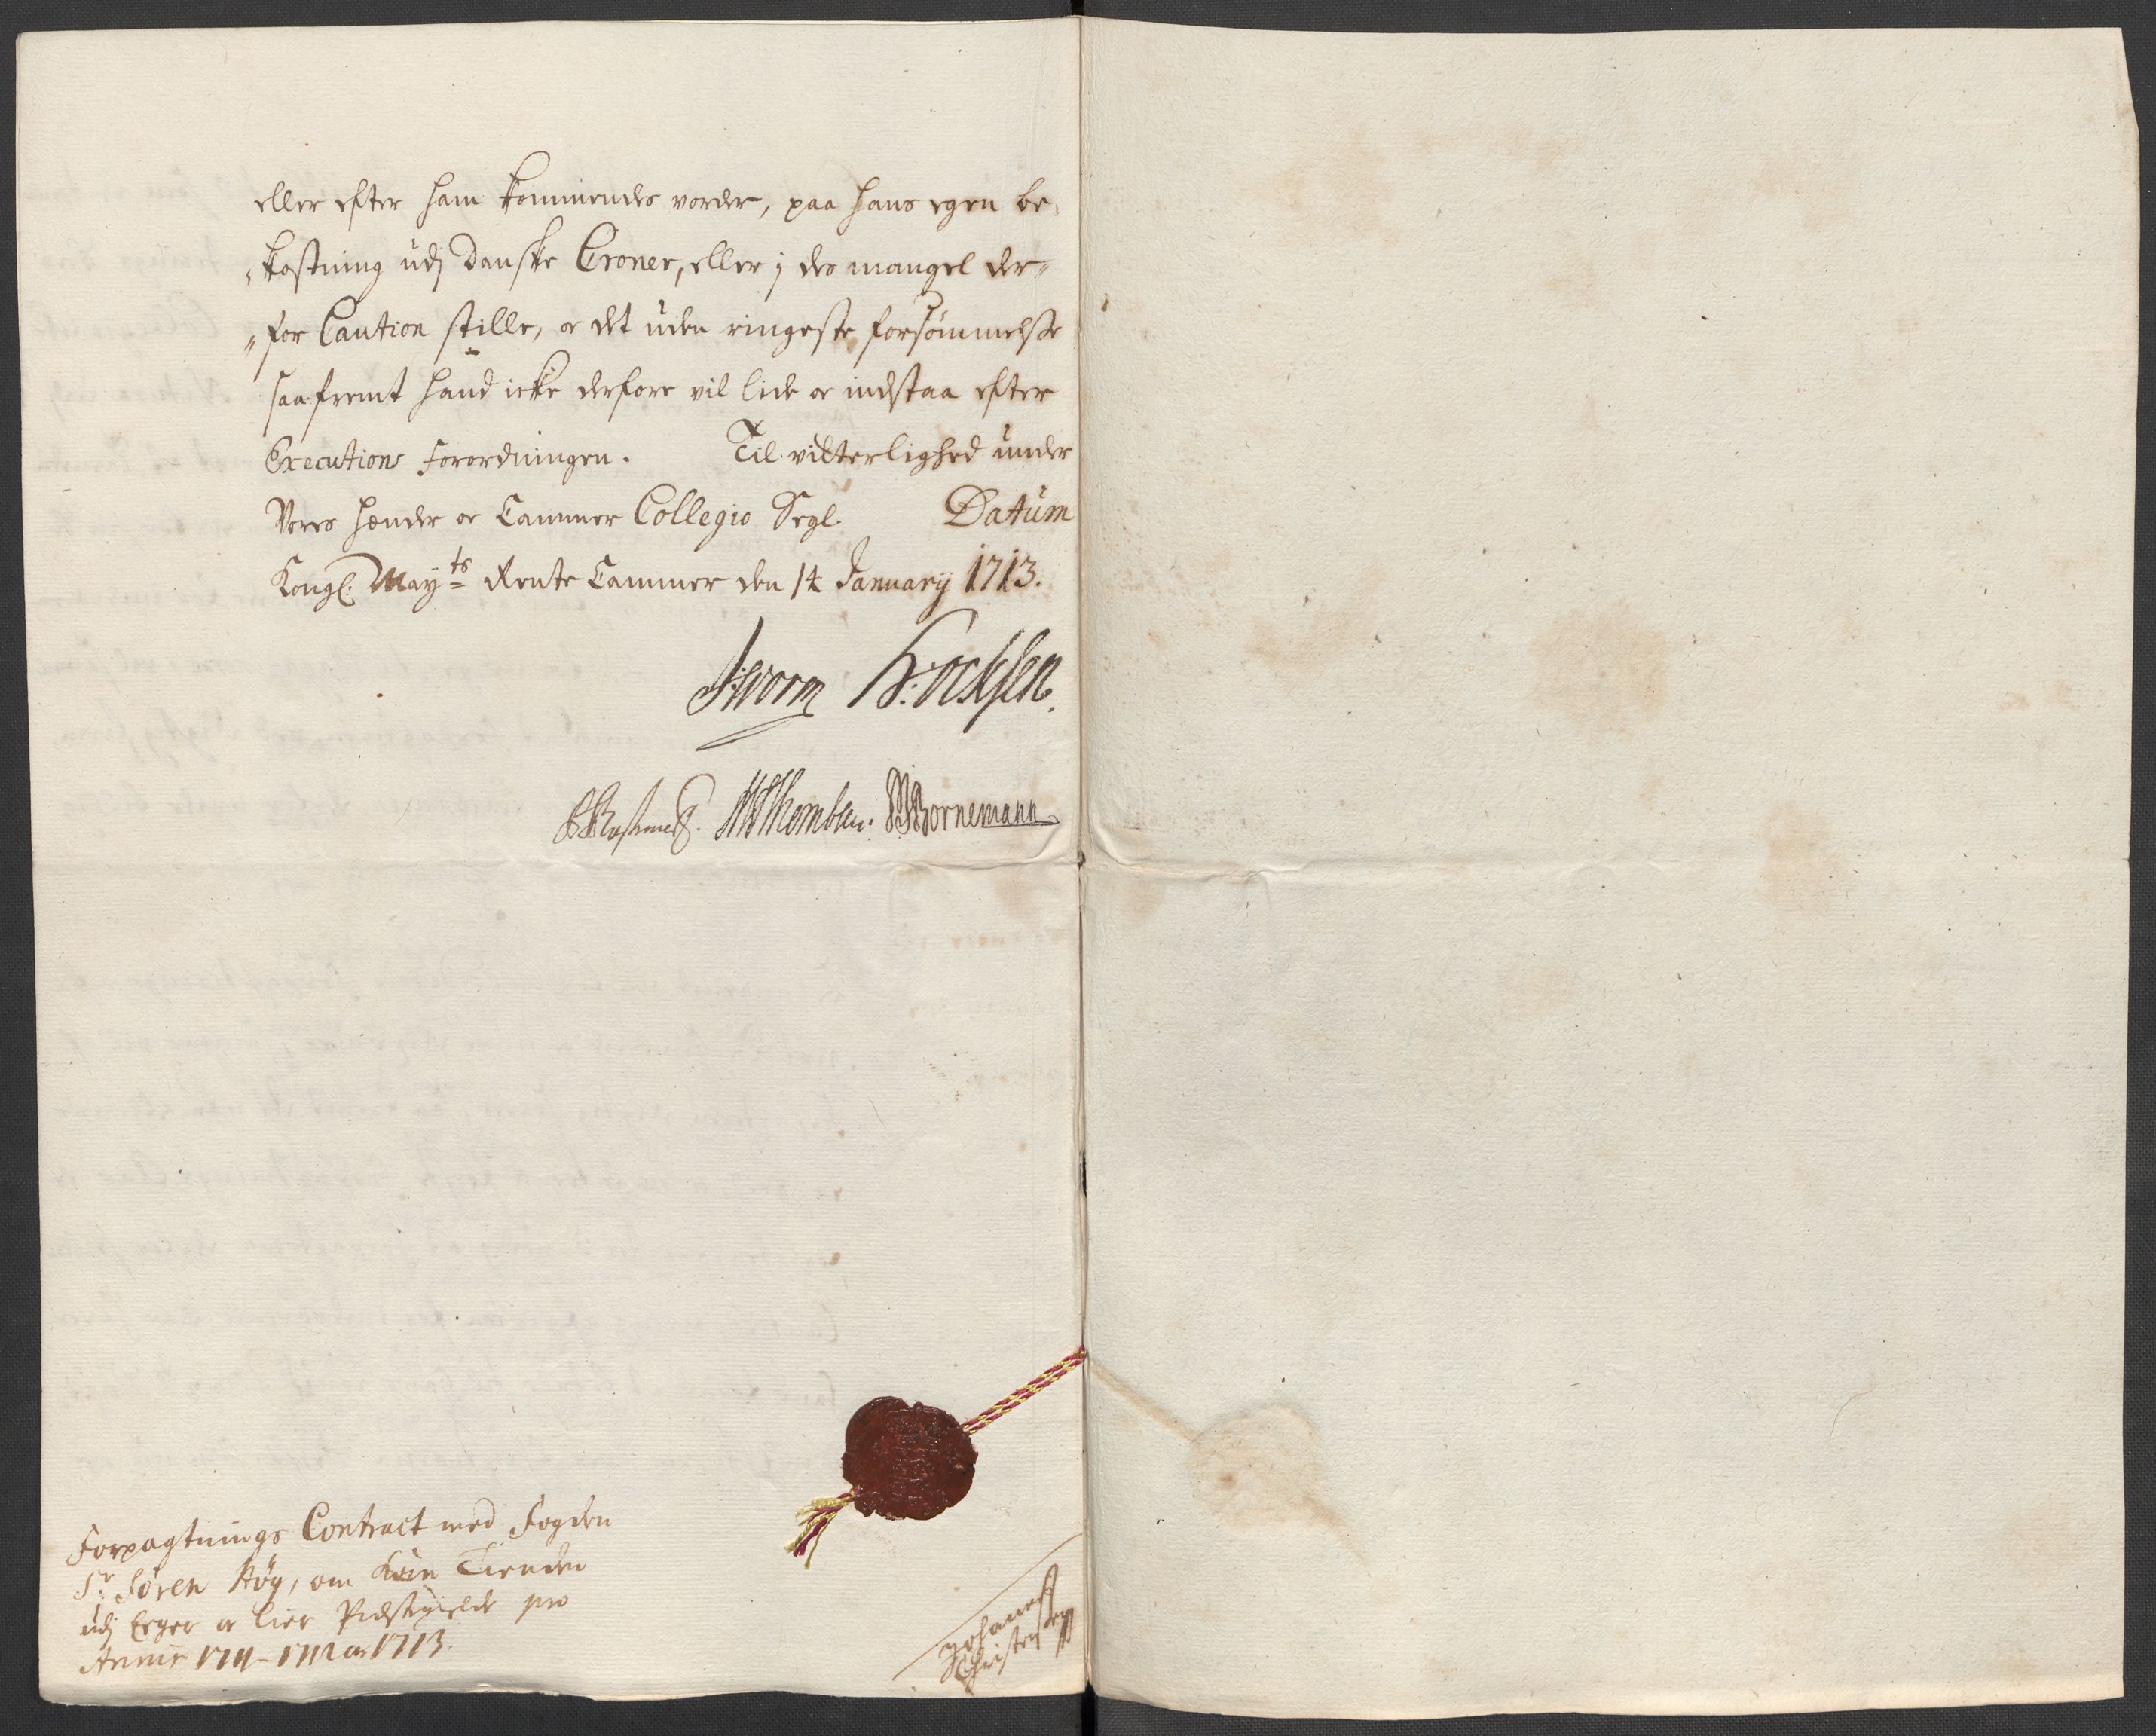 eller efter ham kommendes vorder, paa hans egen be,
,kostning udj danske Croner, eller j des mangel der„
„for Caution stille, oc det uden ringeste forsømmelße
saafremt hand icke derfore vil lide oc indstaa efter
Executions Forordningen. Til vitterlighed under
Vores Hender oc Cammer Collegio Segl. Datum
Kongl: Mayts Rente Cammer den 14 January 1713.
JWorm
Thomsen. Bornemann
Forpagtnings Contract med Fogden
Sr Søren Høy, om Korn Tienden
udj Eger oc Lier pro
Annis 1711-1712 oc 1713.
Johannes
Christensen